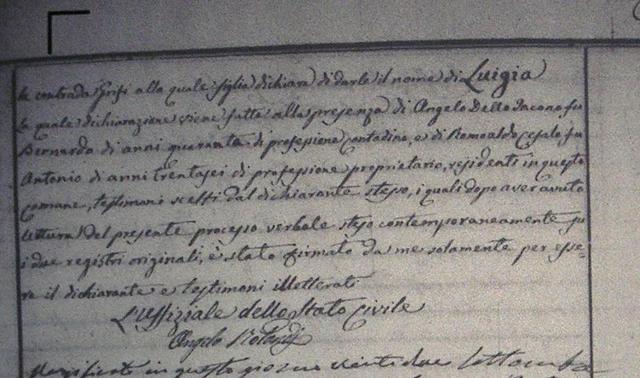 la contrada Grifi alla quale figlia dichiara di darle il nome di Luigia
la quale dichiarazione viene fatta alla presenza di Angelo Dello Iacono fu
Bernardo di anni quaranta di professione contadino, e di Romoaldo Cefalo fu
Antonio di anni trentasei di professione proprietario, residenti in questo
comune, testimoni scelti dal dichiarante stesso, i quali dopo aver avuto
lettura del presente processo verbale steso contemporaneamente su
i due registri originali, è stato firmato da me solamente per esse-
re il dichiarante e testimoni illetterati
L'Uffiziale dello Stato Civile
Angelo
in questo giorno venti due Settembre